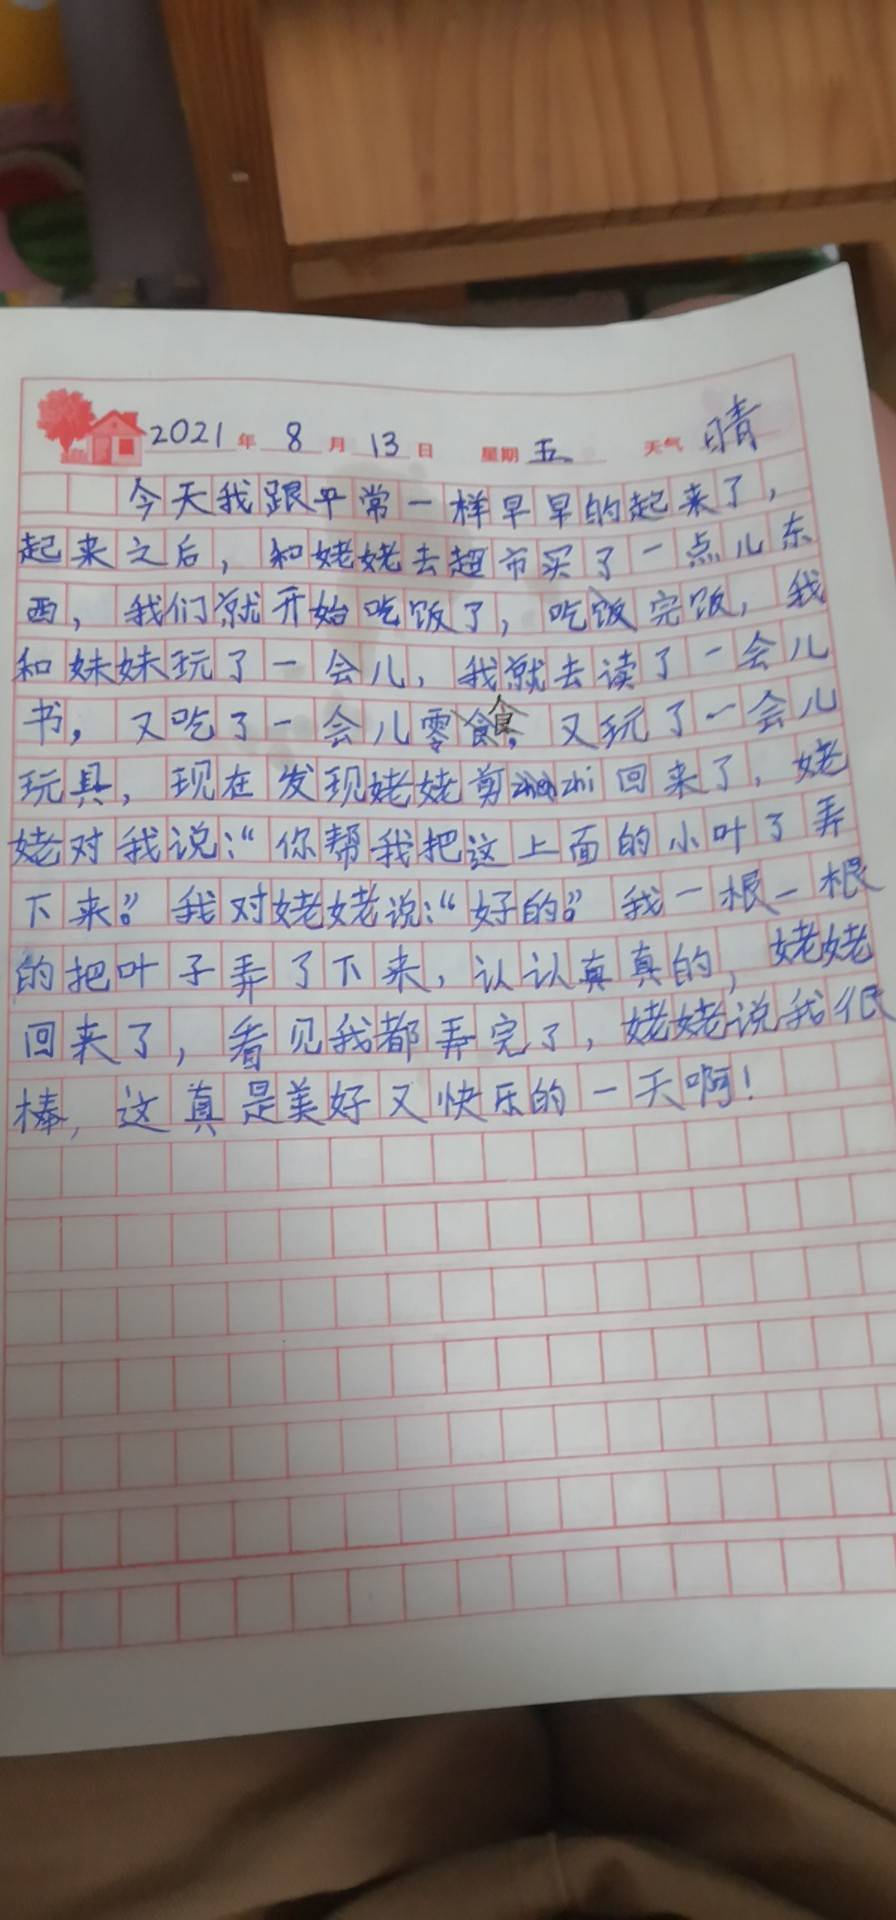 2021年 8月 13日 星期五 天气 晴
今天我跟平常一样早早的起来了，
起来之后，和姥姥去超市买了一点儿东
西，我们就开始吃饭了，吃饭完饭，我
和妹妹玩了一会儿，我就去读了一会儿
书，又吃了一会儿零食，又玩了一会儿
玩具，现在发现姥姥剪zhi回来了，姥
姥对我说：“你帮我把这上面的小叶了弄
下来。”我对姥姥说：“好的。”我一根一根
的把叶子弄了下来，认认真真的，姥姥
回来了，看见我都弄完了，姥姥说我很
棒，这真是美好又快乐的一天啊！